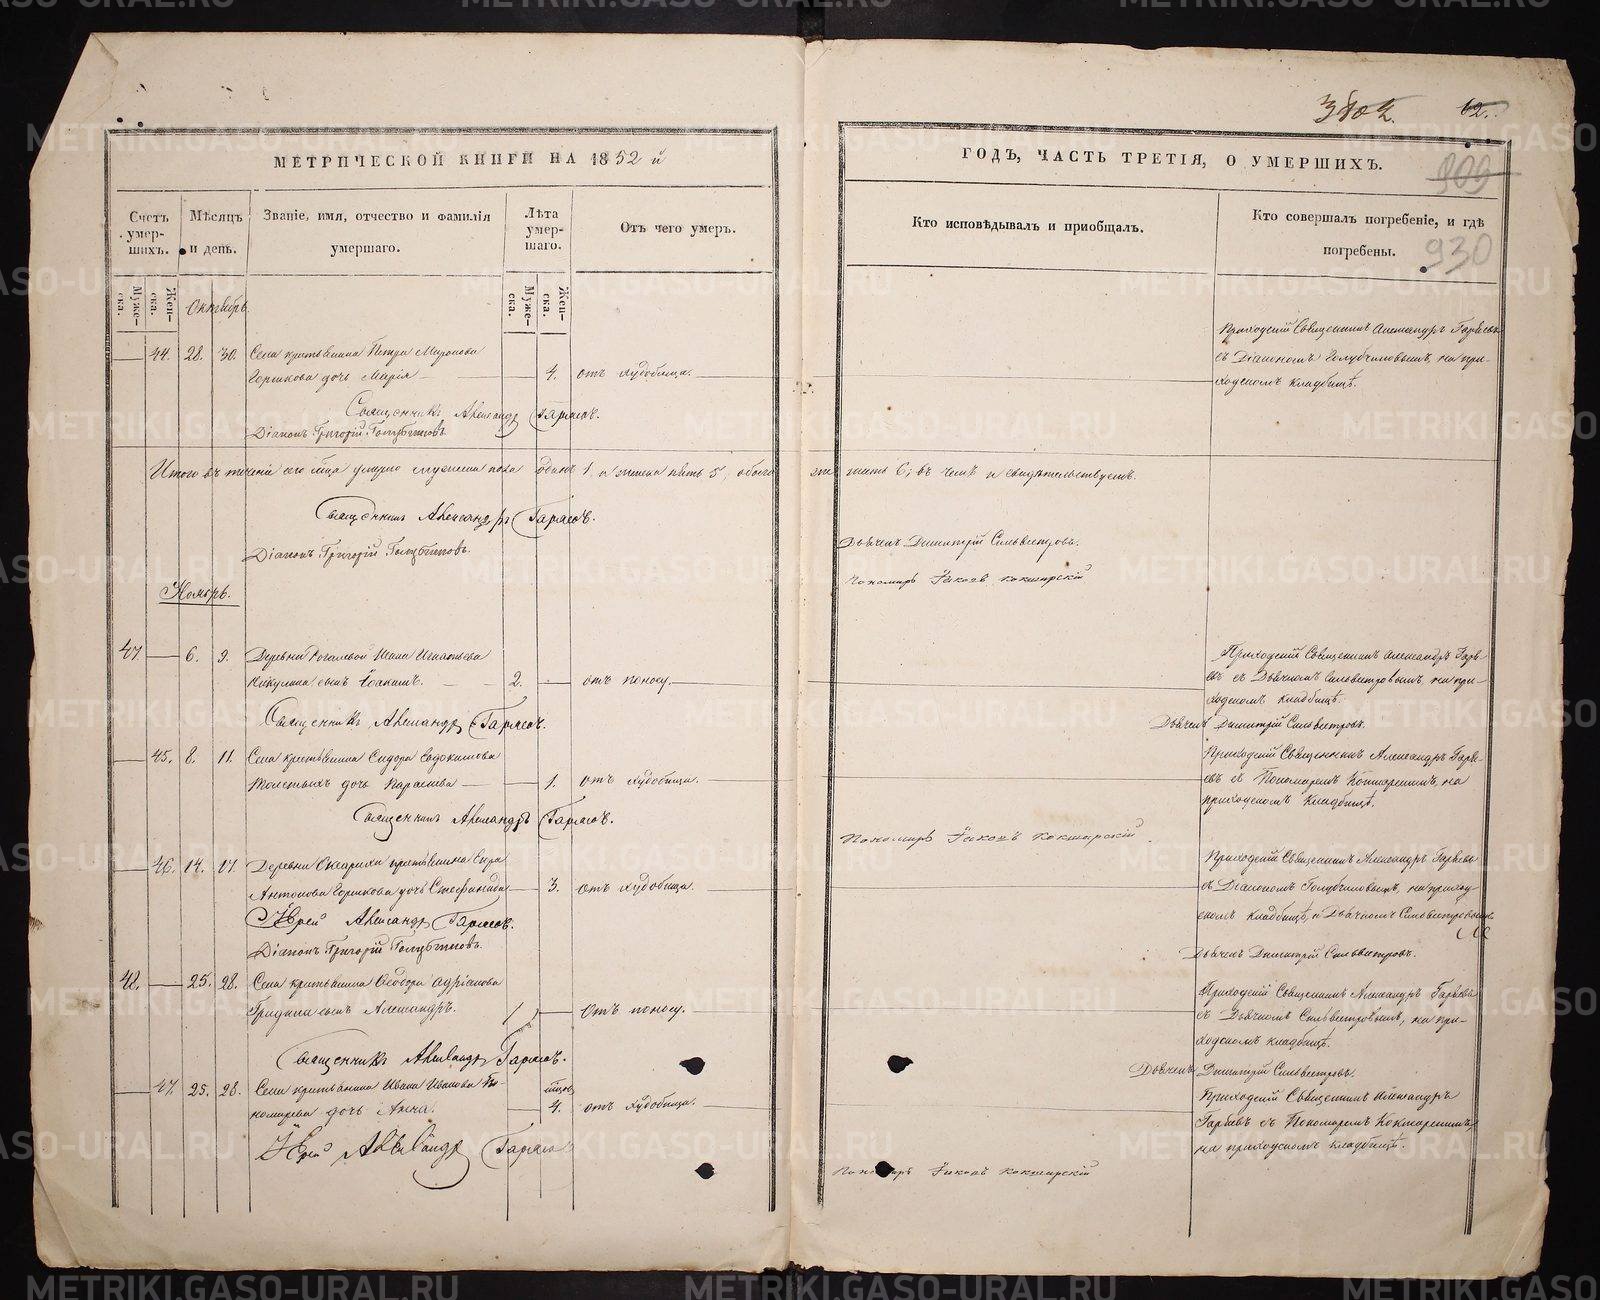 МЕТРИЧЕСКОЙ КНИГИ НА 1852 й
Счетъ умер-шихъ.
Мѣсяцъ и день.
Званіе, имя, отчество и фамилія умершаго.
Лѣта умер-шаго.
Отъ чего умеръ.
Муже-ска.
Жен-ска.
Муже-ска.
Жен-ска.
Октябрь
44. 28. 30. Села крестьянина Петра Миронова
Горшкова дочь Марія 4. отъ худобища.
Священникъ Александръ
Діаконъ Григорій
Итого въ теченіе сего м-ца умерло мужеска пола одинъ 1, а женска пять 5, обоего
Священникъ Александръ
Діаконъ Григорій
Ноябрь.
47. 6. 9. Деревни Ивана Игнатьева
Никулина сынъ Іоакимъ. 2. отъ поносу.
Священникъ Александръ
45. 8. 11. Села крестьянина Сидора Евдокимова
дочь Параскева 1. отъ худобища.
Священникъ Александръ
46. 14. 17. Деревни крестьянина
Антонова Горшкова дочь Стефанида 3. отъ худобища.
Іерей Александръ
Діаконъ Григорій
48. 25. 28. Села крестьянина Ѳеодора Адріанова
сынъ Александръ. 1 отъ поносу.
Священникъ Александръ
47. 25. 28. Села крестьянина Ивана Иванова По-
номарева дочь Анна. 4. отъ худобища.
Іерей Александръ
62.
ГОДЪ, ЧАСТЬ ТРЕТІЯ, О УМЕРШИХЪ.
909
930
Кто исповѣдывалъ и пріобщалъ.
Кто совершалъ погребеніе, и гдѣ погребены.
Приходскій Священникъ Александръ
съ Діакономъ на при-
ходскомъ кладбищѣ.
шесть 6; въ чемъ и свидѣтельствуемъ.
Дьячекъ Димитрій Сильвестровъ.
Пономарь Іаковъ Кокшарскій
Приходскій Священникъ Александръ
съ Дьячкомъ Сильвестровымъ, на при-
ходскомъ кладбищѣ.
Дьячекъ Димитрій Сильвестровъ.
Приходскій Священникъ Александръ
съ Пономаремъ Кокшарскимъ, на
приходскомъ кладбищѣ.
Пономарь Іаковъ Кокшарскій
Приходскій Священникъ Александръ
съ Діакономъ на приход-
скомъ кладбищѣ, и Дьячкомъ Сильвестровымъ
Дьячекъ Димитрій Сильвестровъ.
Приходскій Священникъ Александръ
съ Дьячкомъ Сильвестровымъ, на при-
ходскомъ кладбищѣ.
Дьячекъ Димитрій Сильвестровъ.
Приходскій Священникъ Александръ
съ Пономаремъ Кокшарскимъ,
на приходскомъ кладбищѣ.
Пономарь Іаковъ Кокшарскій
METRIKI.GASO-URAL.RU